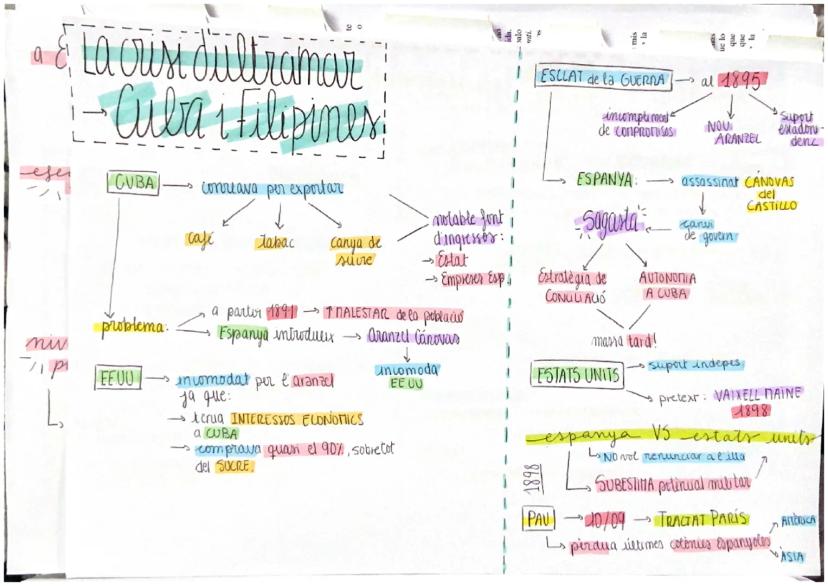 La crisi d'ultramar
→ Cuba i Filipines
CUBA → conreava per exportar
café
tabac
canya de
sucre
notable font
d'ingressos:
→ Estat
→ Empreses Esp.
problema:
→ a partir 1891 → ↑MALESTAR de la població
→ Espanya introdueix → Aranzel Cánovas
incomoda
EEUU
EEUU → incomodat per l'aranzel
ja que:
→ tenia INTERESSOS ECONÒMICS
a CUBA
→ comprava quasi el 90%, sobretot
del SUCRE.
ESCLAT de la GUERRA → al 1895
incompliment
de COMPROMISOS
NOU
ARANZEL
suport
estadouni-
denc
ESPANYA: → assassinat CÁNOVAS
del
CASTILLO
canvi
de govern
Sagasta
Estratègia de
CONCILIACIÓ
AUTONOMIA
A CUBA
massa tard!
ESTATS UNITS → suport indepes
→ pretext: VAIXELL MAINE
1898
espanya VS estats units
1898
↳ NO vol renunciar a l'illa
→ SUBESTIMA potencial militar
PAU → 10/09 → TRACTAT PARÍS
↳ pèrdua últimes colònies espanyoles
AMÈRICA
ÀSIA